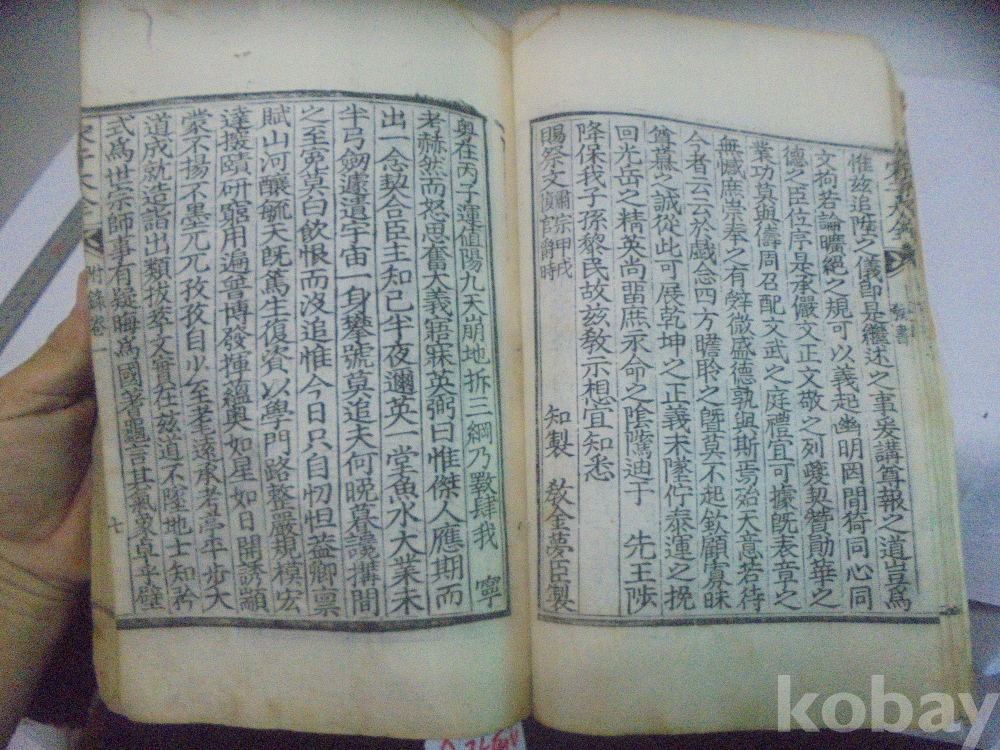 惟玆追陞之儀卽是繼述之事奚講尊報之道豈爲
文拘若論曠絶之規可以義起幽明罔間猗同心同
德之臣位序是承儼文正文敬之列夔契贊勛華之
業功莫與儔周召配文武之庭禮宜可據旣表章之
無憾庶崇奉之有辭微盛德孰與斯焉殆天意若待
今者云云於戲念四方瞻聆之曁莫不起欽顧寡昧
羹慕之誠從此可展乾坤之正義未墜佇泰運之挽
回光岳之精英尙畱庶永命之陰騭迪于 先王陟
降保我子孫黎民故玆敎示想宜知悉
知製 敎金夢臣製
賜祭文 肅宗甲戌復官爵時
粤在丙子運値陽九天崩地拆三綱乃斁肆我 寧
考赫然而怒思奮大義寤寐英弼曰惟傑人應期而
出一念契合臣主知已半夜邇英一堂魚水大業未
半弓劒遽遺宇宙一身攀號莫追夫何晩暮讒搆間
之至寃莫白飮恨而沒追惟今日只自忉怛盖卿禀
賦山河釀毓天旣篤生復資以學門路整嚴規模宏
達援賾硏窮用遍費博發揮蘊奧如星如日開誘顓
蒙不揚不墨兀兀孜孜自少至老遠承考亭平步大
道成就造詣出類拔萃文實在玆道不墜地士知矜
式爲世宗師事有疑晦爲國蓍龜言其氣象卓乎壁
附錄卷一
七
敎書
kobay